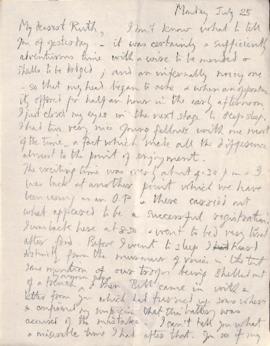 Monday July 25
My dearest Ruth, I don't know what to tell
you of yesterday - it was certainly a sufficiently
adventurous time with a wire to be mended &
shells to be dodged; and an infernally noisy one
- so that my head began to ache & when an opportunity
offered for half an hour in the early afternoon
I just closed my eyes in the next stage to sleep.
I had two very nice young fellows with me most
of the time, a fact which made all the difference
almost to the point of enjoyment.
The exciting time was over about 4.30 p.m. & I
was back at another point which we have
been using as an O.P. & there carried out
what appeared to be a successful registration.
I was back here at 8.30 & went to bed very tired
after food. Before I went to sleep I heard
distinctly from the murmur of voices in the
some mention of our troops being shelled out
of a trench & then Bell came in with a
letter from which had
a confirmed my suspicion that this battery was
accused of the mistake. I can't tell you what
a miserable time I had after that. You see if my